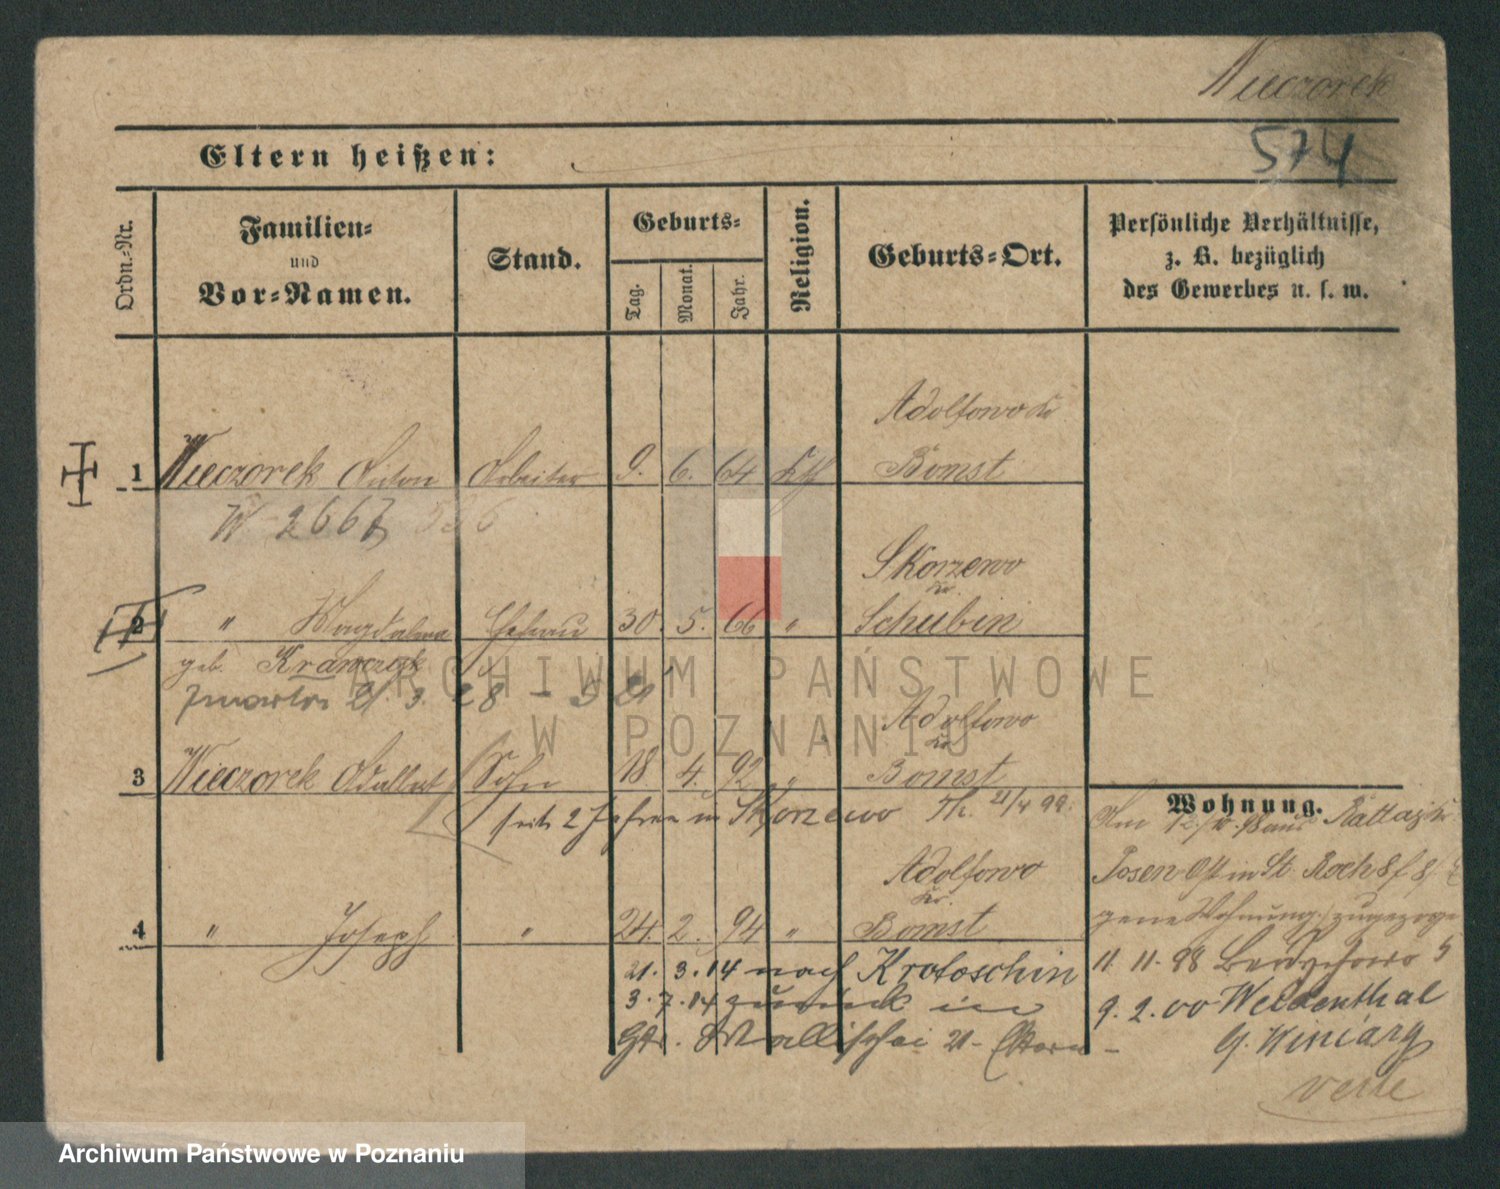 Wieczorek
574
Eltern heißen:
Ordn.-Nr.
Familien-
und
Vor-Namen.
Stand.
Geburts-
Tag.
Monat.
Jahr.
Religion.
Geburts-Ort.
Persönliche Verhältnisse,
z. B. bezüglich
des Gewerbes u. s. w.
Adolfowo Kr
1 Wieczorek Anton Arbeiter 9. 6. 64 Kth Bomst
W 2667
Skorzewo
Kr.
2 " Magdalena Ehefrau 30. 5. 66 " Schubin
geb. Krawczyk
zmarła 21. 3. 28
Adolfowo
Kr
3 Wieczorek Adalbert Sohn 18 4. 92 " Bomst
seit 2 Jahren in Skorzewo Th. 21/4 99.
Adolfowo
Kr.
4 " Joseph " 24. 2. 94 " Bomst
21. 3. 14 nach Krotoschin
3. 7. 14 zurück in
Wallischei 21 - Eltern -
Wohnung.
Am 12/10. 98 aus Rattay Kr.
Posen Ost in St. Roch 8
Wohnung zugezogen
11. 11. 98
9. 2. 00 Weidenthal
G. Winiary
verte
ARCHIWUM PAŃSTWOWE
W POZNANIU
Archiwum Państwowe w Poznaniu